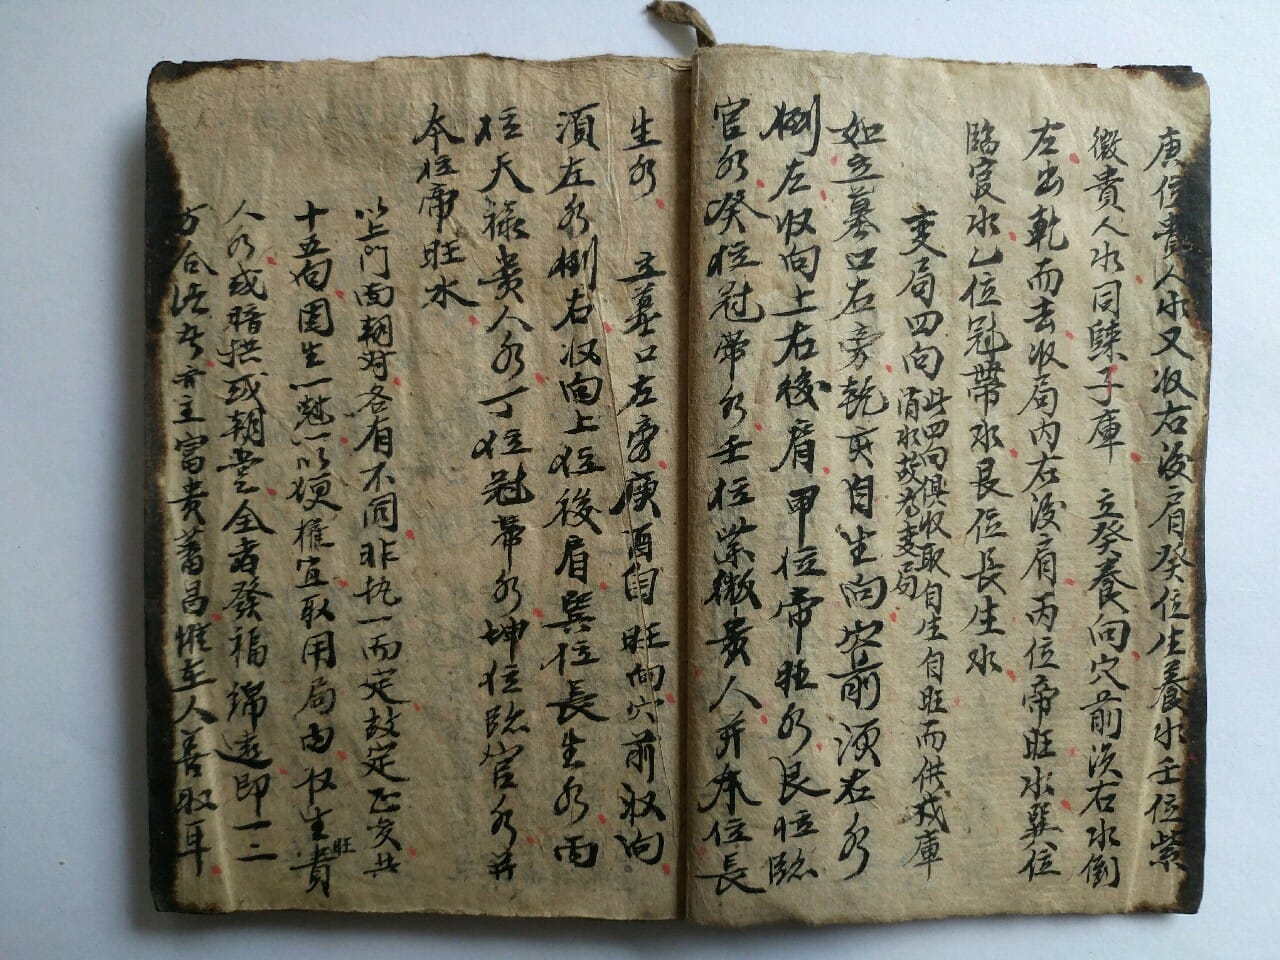 庚位貴人水又收右後肩癸位生養水壬位紫
微貴人水同歸子庫 立癸養向穴前須右水倒
左出乾而去收局內左後肩丙位帝旺水巽位
臨官水乙位冠帶水艮位長生水
变局四向 此四向俱收取自生自旺而供戎庫
消水故為变局
如立墓口右旁乾亥自生向穴前須左水
倒左收向上右後肩甲位帝旺水艮位臨
官水癸位冠帶水壬位紫微貴人并本位長
生水 立墓口左旁庚酉自旺向穴前收向
須左水倒右收向上位後肩巽位長生水丙
位天祿貴人水丁位冠帶水坤位臨官水并
本位帝旺水
以上門向朝对各有不同非执一而定故定正变共
十五向因生一魁以便權宜取用局內收生旺貴
人水或暗拱或朝堂全者發福綿遠即一二
方合法者亦主富貴蕃昌惟在人善取耳